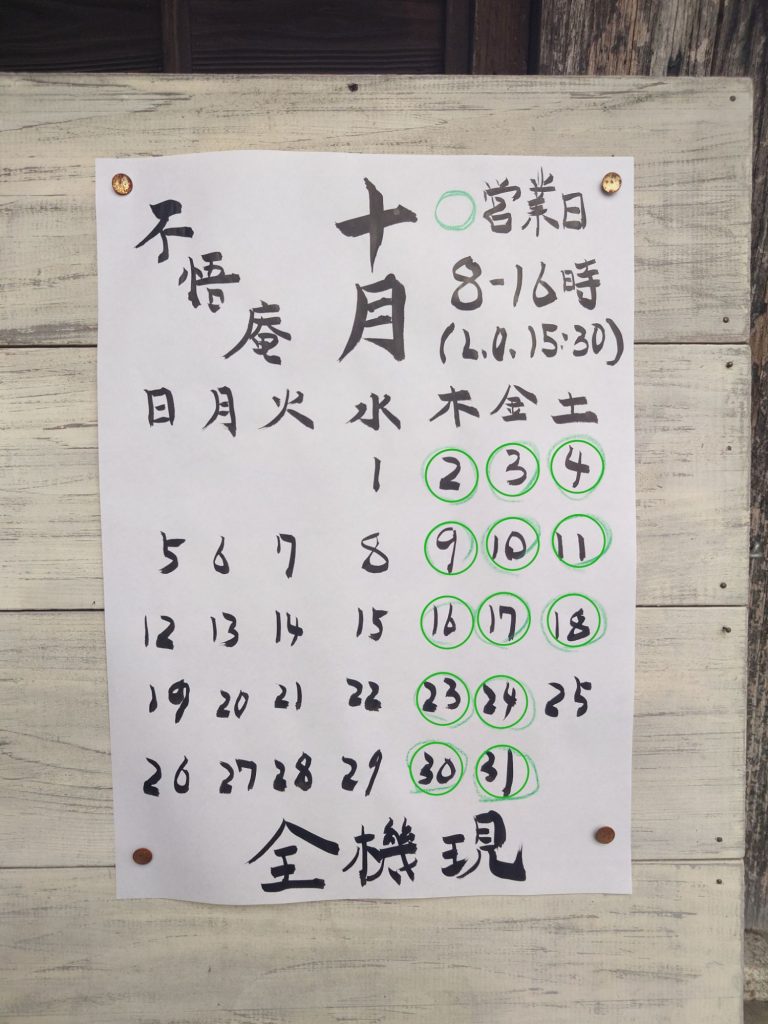 不悟庵
十月
○営業日
8-16時
(L.O.15:30)
日 月 火 水 木 金 土
1 2 3 4
5 6 7 8 9 10 11
12 13 14 15 16 17 18
19 20 21 22 23 24 25
26 27 28 29 30 31
全機現